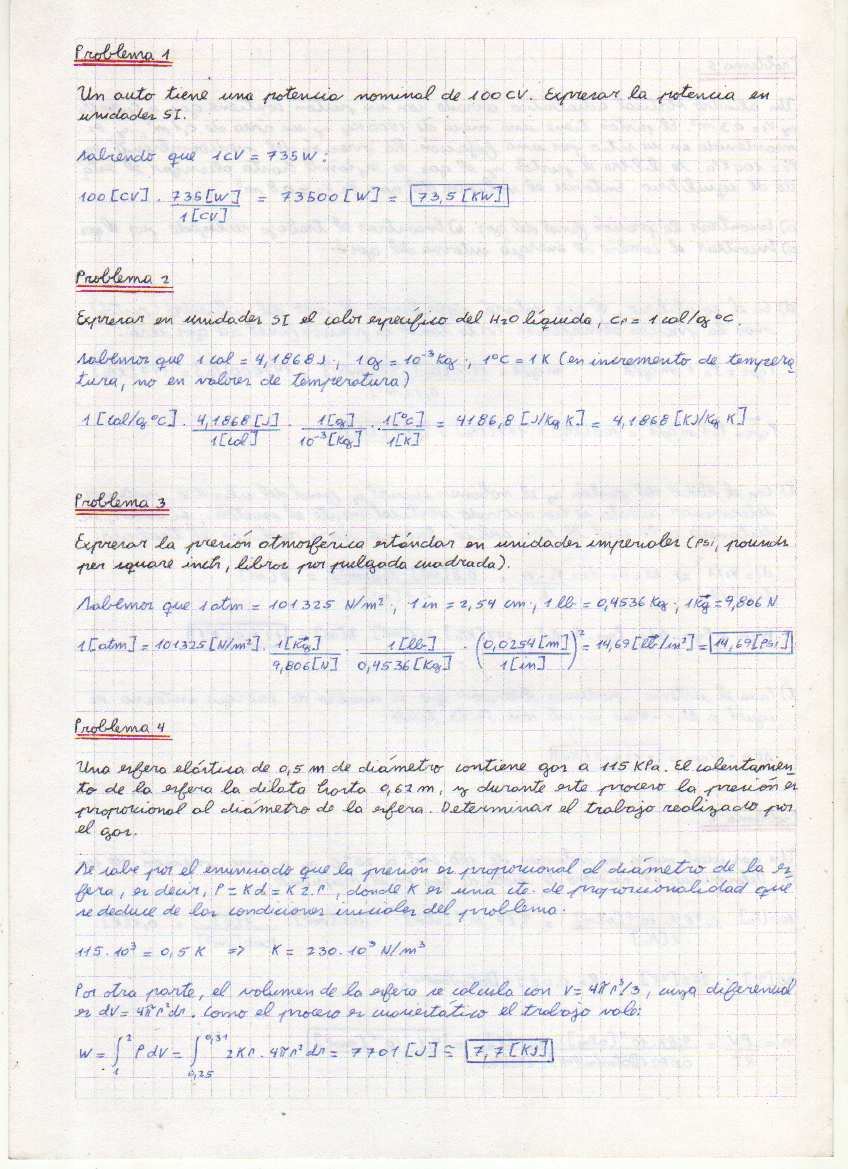 Problema 1
Un auto tiene una potencia nominal de 100 CV. Expresar la potencia en
unidades SI.
Sabiendo que 1 CV = 735 W:
100 [CV] · 735 [W] / 1 [CV] = 73500 [W] = 73,5 [KW]
Problema 2
Expresar en unidades SI el calor específico del H2O líquida, CP = 1 cal/g °C.
Sabemos que 1 cal = 4,1868 J ; 1 g = 10⁻³ Kg ; 1°C = 1 K (en incremento de tempera-
tura, no en valores de temperatura)
1 [cal/g °C] · 4,1868 [J] / 1 [cal] · 1 [g] / 10⁻³ [Kg] · 1 [°C] / 1 [K] = 4186,8 [J/Kg K] = 4,1868 [KJ/Kg K]
Problema 3
Expresar la presión atmosférica estándar en unidades imperiales (PSI, pounds
per square inch, libras por pulgada cuadrada).
Sabemos que 1 atm = 101325 N/m² ; 1 in = 2,54 cm ; 1 lb = 0,4536 Kg ; 1 Kg = 9,806 N
1 [atm] = 101325 [N/m²] · 1 [Kg] / 9,806 [N] · 1 [lb] / 0,4536 [Kg] · (0,0254 [m] / 1 [in])² = 14,69 [lb/in²] = 14,69 [PSI]
Problema 4
Una esfera elástica de 0,5 m de diámetro contiene gas a 115 KPa. El calentamien-
to de la esfera la dilata hasta 0,62 m, y durante este proceso la presión es
proporcional al diámetro de la esfera. Determinar el trabajo realizado por
el gas.
Se sabe por el enunciado que la presión es proporcional al diámetro de la es-
fera, es decir, P = K d = K 2 · r, donde K es una cte. de proporcionalidad que
se deduce de las condiciones iniciales del problema.
115 · 10³ = 0,5 K => K = 230 · 10³ N/m³
Por otra parte, el volumen de la esfera se calcula con V = 4πr³/3, cuya diferencial
es dV = 4πr²dr. Como el proceso es cuasiestático el trabajo vale:
W = ∫₁² P dV = ∫ 0,25 0,31 2Kr · 4πr² dr = 7701 [J] ≅ 7,7 [KJ]